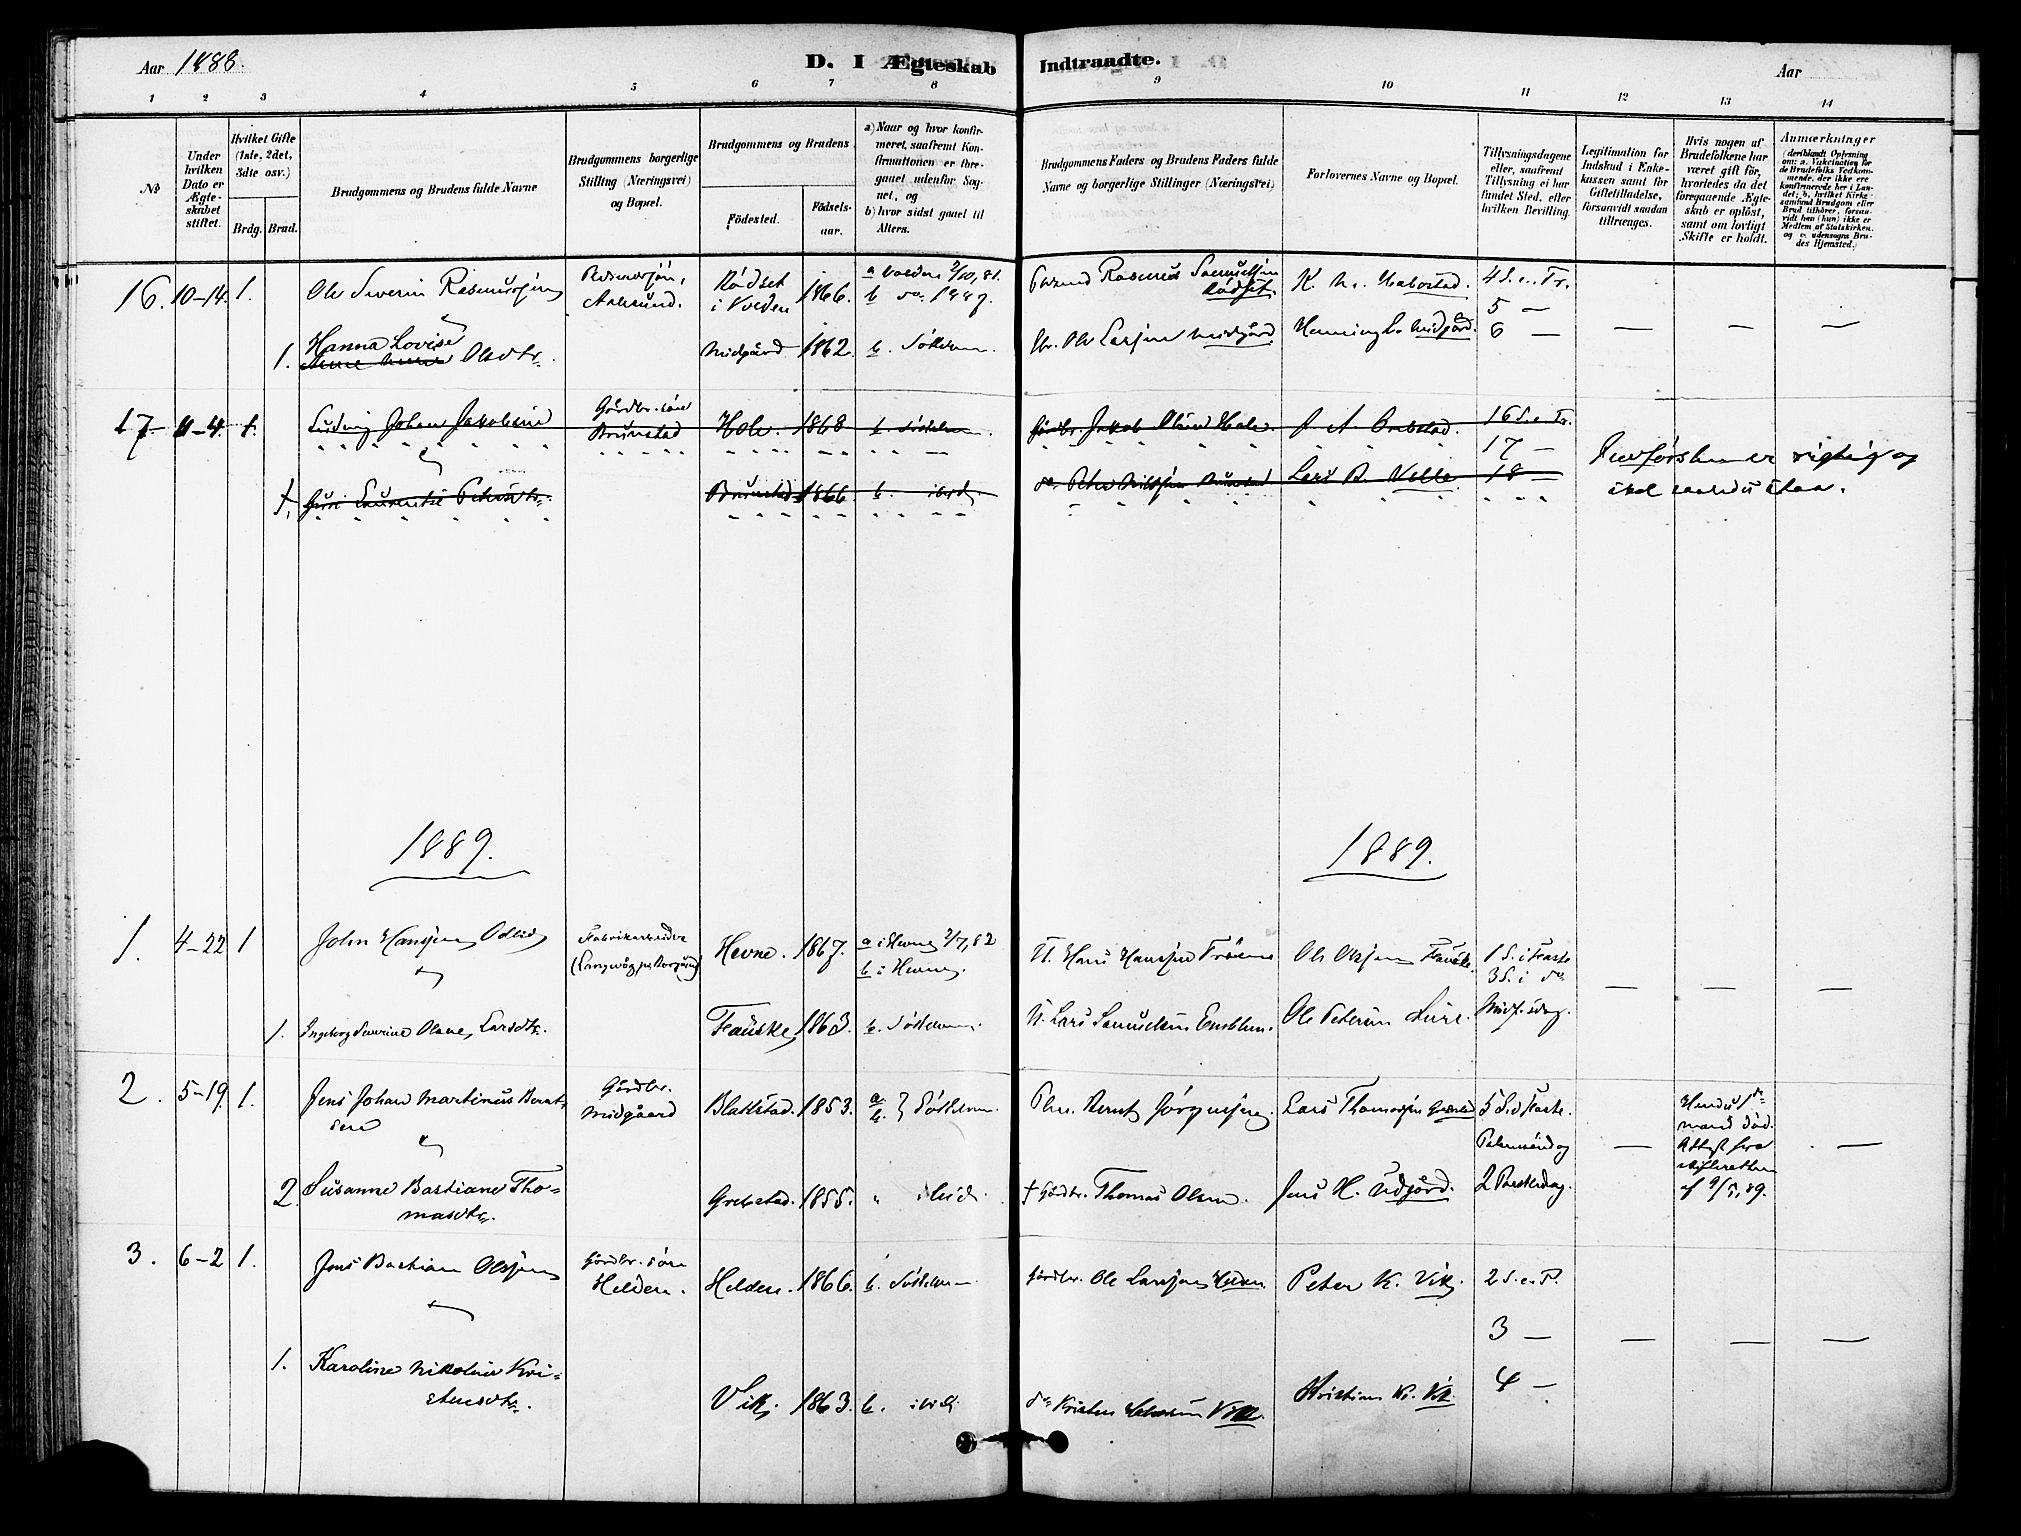 Aar 1888.
D. I Ægteskab Indtraadte.
Aar
1 2 3 4 5 6 7 8 9 10 11 12 13 14
No
Under hvilken Dato er Ægteskabet stiftet.
Hvilket Gifte (1ste, 2det, 3die osv.)
Brdg. Brud.
Brudgommens og Brudens fulde Navne
Brudgommens borgerlige Stilling (Næringsvei) og Bopæl.
Brudgommens og Brudens
Födested.
Födselsaar.
a) Naar og hvor konfirmeret, saafremt Konfirmationen er foregaaet udenfor Sognet, og
b) hvor sidst gaaet til Alters.
Brudgommens Faders og Brudens Faders fulde Navne og borgerlige Stillinger (Næringsvei)
Forlovernes Navne og Bopæl.
Tillysningsdagene eller, saafremt Tillysning ei har fundet Sted, efter hvilken Bevilling.
Legitimation for Indskud i Enkekassen samt for Giftetilladelse, forsaavidt saadan tiltrænges.
Hvis nogen af Brudefolkene har været gift för, hvorledes da det foregaaende Ægteskab er oplöst, samt om lovligt Skifte er holdt.
Anmærkninger
(deriblandt Oplysning om: a. Vakcination for de Brudefolks Vedkommende, der ikke ere konfirmerede her i Landet; b. hvilket Kirkesamfund Brudgom eller Brud tilhörer, forsaavidt han (hun) ikke er Medlem af Statskirken, og c. udensogns Brudes Hjemsted.)
16. 10-14. 1. Ole Severin Rasmussen Aalesund. Rödset i Volden 1866. a Volden 2/10, 81. b do 1887. Rasmus Samuelsen Rödset. K. Habostad. 4 S. e. Tr.
5 —
Hanna Lovise
1. Olsdtr. Midgård 1862. b. Söklven. Ole Larsen Midgård Henning L. Midgård. 6 — — — —
17. 11-4. 1. Ludvig Johan Jakobsen Gårdbr. sön Brunstad Hole. 1868 b. Söklven. Gårdbr. Jakob Olsen Hole. 16 S. e. Tr.
17 —
1. Guri Laurentse Petersdtr. Brunstad 1866 b. ibid. do Peter Lars B. Velle 18 —
Indförslen er rigtig og
skal saaledes staa.
1889. 1889.
1. 4-22 1 John Hansen Fabrikarbeider Hevne. 1867. a i Hevne 2/7, 82 b i Hevne. Hans Hansen Ole Olsen Fauske. 1 S. i Faste
3 S. i do
1. Ingeborg Severine Olave Larsdtr. Fauske, 1863. b. Söklven. Lars Samuelsen Emblem. Ole Petersen Midf. sdag. — — —
2. 5-19. 1. Jens Johan Martinus Berntsen Gårdbr. Midgaard Blakstad. 1853. a b } Söklven. Bernt Jörgensen. Lars Thomassen Grebstad 5 S. i Faste.
Palmesöndag
Hendes 1ste
mand död.
Attest fra
skifteretten
af 9/5, 89.
— —
2. Susanne Bastiane Thomasdtr. Grebstad. 1855. " ibid. † Gårdbr. Thomas Olsen Jens H. Udgård. 2 Paaskedag.
3. 6-2 1. Jens Bastian Olsen Gårdbr. sön Helden. Helden. 1866. b. Söklven Gårdbr. Ole Larsen Helden Peter K. Vik. 2 S. e. P.
3 — — — —
1. Karoline Nikoline Kristensdtr. Vik. 1863. b. ibid. do Kristen Vik. Kristian K. Vik. 4 —